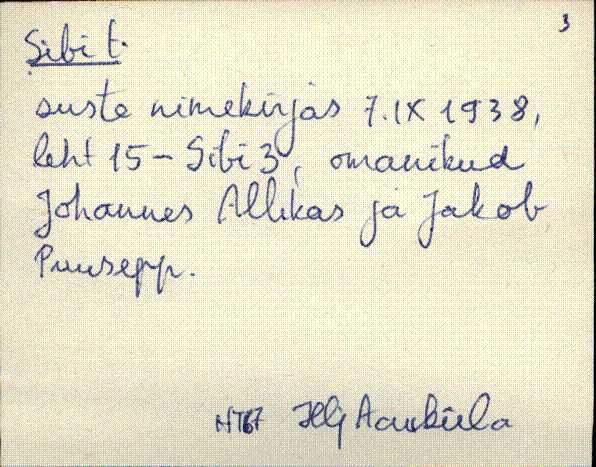 3
Sibi t.
suste nimekirjas 7.IX 1938,
leht 15 - Sibi 3, omanikud
Johannes Allikas ja Jakob
Puusepp.